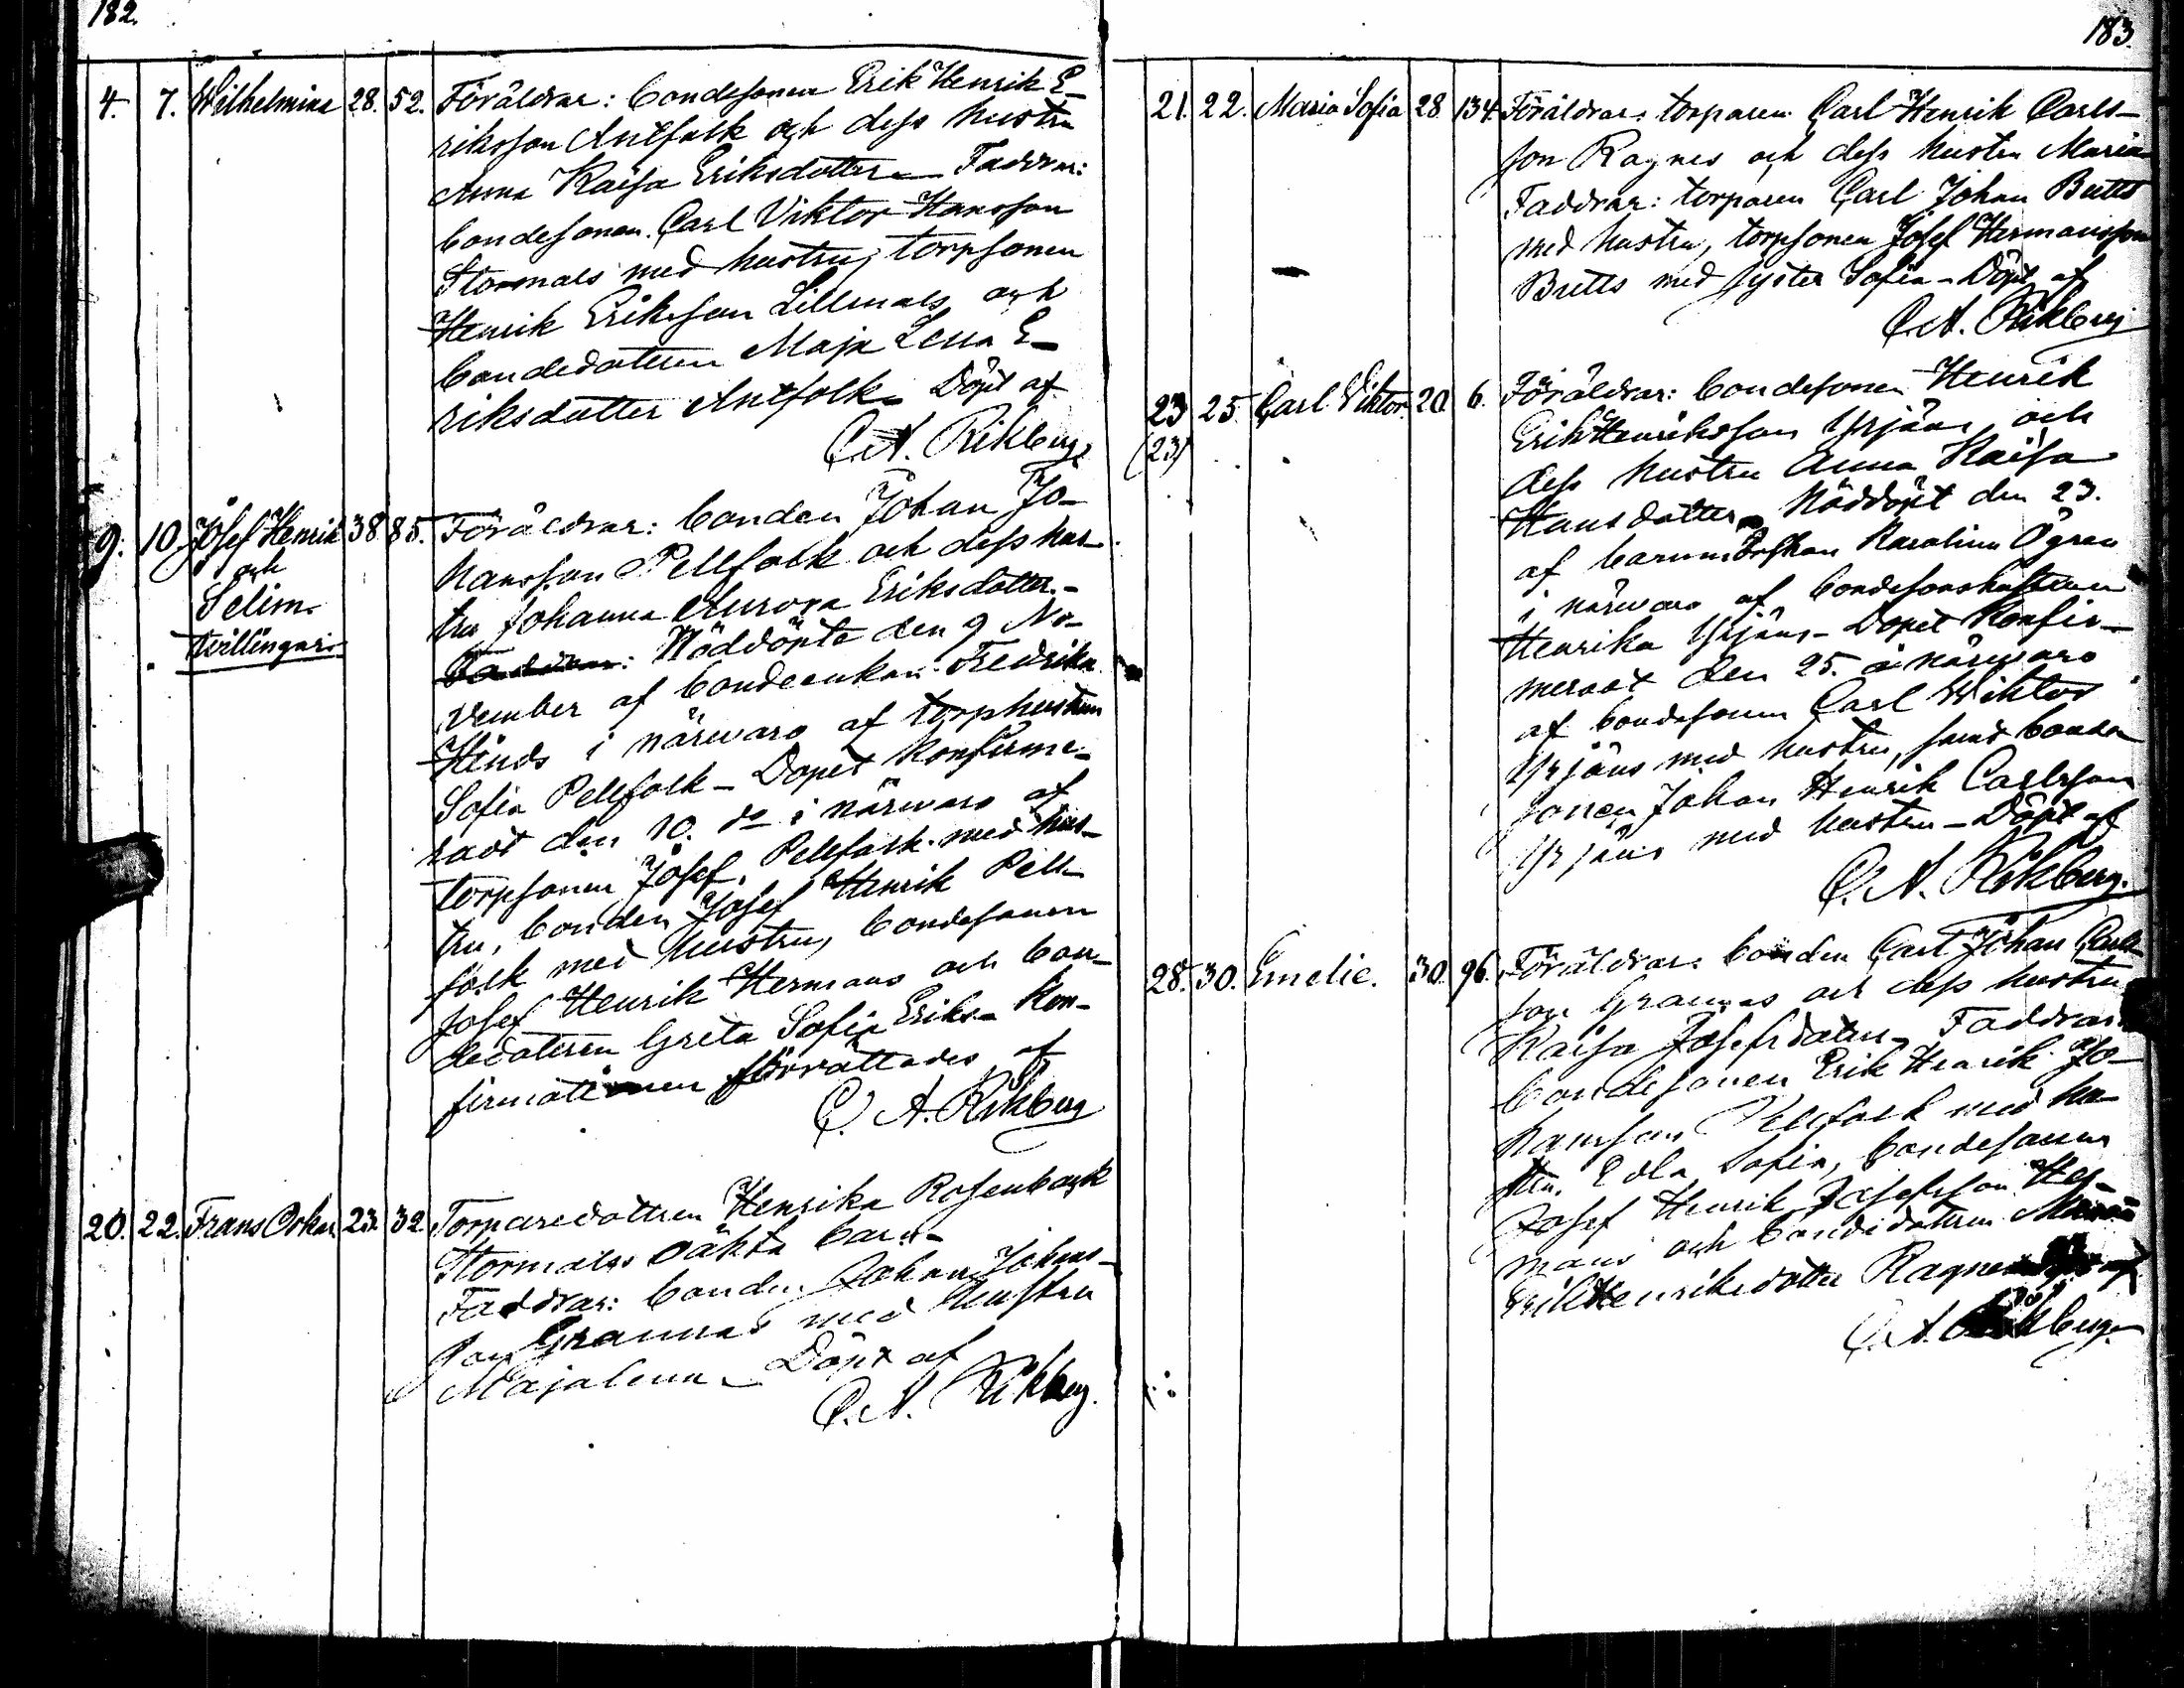 182.
4. 7. Wilhelmina 28. 52. Föräldrar: bondesonen Erik Henrik E-
riksson Antfolk och dess hustru
Anna Kaisa Eriksdotter – Faddrar:
bondesonen Carl Viktor Hansson
Stormåls med hustru, torpsonen
Henrik Eriksson Lillmåls och
bondedottren Maja Lena E-
riksdotter Antfolk – Döpt af
C. A. Rikberg.
9. 10. Josef Henrik 38. 85. Föräldrar: bonden Johan Jo-
och
Selim.
tvillingar.
hansson Pellfolk och dess hus-
tru Johanna Aurora Eriksdotter. –
Faddrar: Nöddöpte den 9 No-
vember af bondeenkan Fredrika
Hinds i närvaro af torphustrun
Sofia Pellfolk – Dopet konfirme-
radt den 10. do i närvaro af
torpsonen Josef Pellfolk med hus-
tru, bonden Josef Henrik Pell-
folk med hustru, bondesonen
Josef Henrik Hermans och bon-
dedottren Greta Sofia Eriks – Kon-
firmationen förrättades af
C. A. Rikberg
20. 22. Frans Oskar 23. 32. Torparedottren Henrika Rosenback
Stormåls oäkta barn –
Faddrar: bonden Johan Johans-
son Grannas med hustru
Majalena – Döpt af
C. A. Rikberg.
183.
21. 22. Maria Sofia 28. 134. Föräldrar: torparen Carl Henrik Carls-
son Ragnes och dess hustru Maria
Faddrar: torparen Carl Johan Butts
med hustru, torpsonen Josef Hermansson
Butts med syster Sofia – Döpt af
C. A. Rikberg
23 25. Carl Viktor. 20. 6. Föräldrar: bondesonen Henrik
(23)
Erik Henriksson Yrjäns och
dess hustru Anna Kaisa
Hansdotter – Nöddöpt den 23.
af barnmorskan Karolina Ögren
i närvaro af bondesonshustrun
Henrika Yrjäns – Dopet konfir-
meradt den 25. i närvaro
af bondesonen Carl Wiktor
Yrjäns med hustru, samt bonde
sonen Johan Henrik Carlsson
Yrjäns med hustru – Döpt af
C. A. Rikberg.
28. 30. Emelie. 30. 96. Föräldrar: bonden Carl Johan Carls-
son Grannas och dess hustru
Kaisa Josefsdotter – Faddrar:
bondesonen Erik Henrik Jo-
hansson Pellfolk med hu-
stru Edla Sofia, bondesonen
Josef Henrik Josefsson Her-
mans och bondedottren Maria
Erik Henriksdotter Ragnes
C. A. Rikberg.